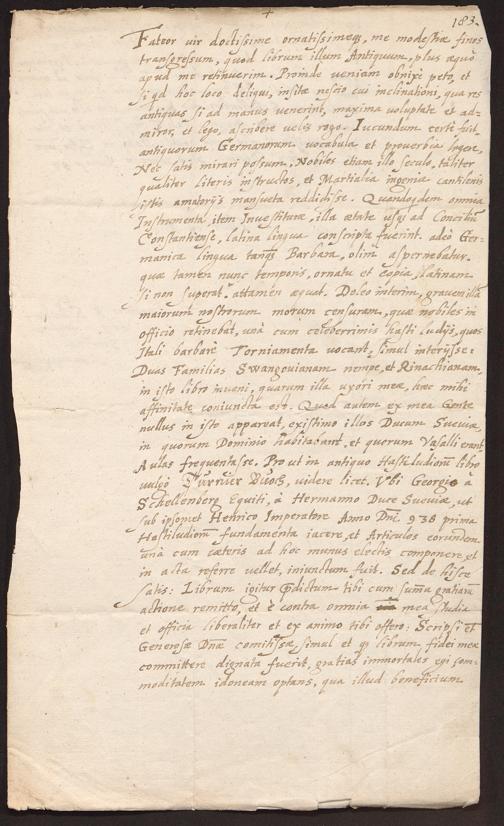 183.
+
Fateor vir doctissime ornatissimeq3, me modestiæ fines
transgressum, quod librum illum Antiquum, plus æquo
apud me retinuerim. Proinde veniam obnixe peto, et
si qd hoc loco deliqui, insitæ nescio cui inclinationi, qua res
antiquas si ad manus venerint, maxima voluptate et ad-
miror, et lego, ascribere velis rogo. Iucundum certe fuit
antiquorum Germanorum vocabula et proverbia legere,
Nec satis mirari possum, Nobiles etiam illo seculo, taliter
qualiter literis instructos, et Martialia ingenia cantilenis
istis amatorijs mansueta reddidisse. Quandoqdem omnia
Instrumenta, item Investituræ, illa ætate usq3 ad Conciliũ
Constantiense, latina lingua conscripta fuerint. adeò Ger-
manica lingua tanq3 Barbara, olim aspernebatur.
quæ tamen nunc temporis, ornatu et copia, latinam
si non superat, attamen æquat. Doleo interim, gravem illã
maiorum nostrorum morum censuram, quæ nobiles in
officio retinebat, unà cum celeberrimis hasti ludijs, quos
Itali barbarè Torniamenta vocant, simul interijsse:
Duas Familias Swangouianam nempe, et Rinachianam,
in isto libro inveni, quarum illa uxori meæ, hæc mihi
affinitate coniuncta est. Quod autem ex mea Gente
nullus in isto appareat, existimo illos Ducum Sueviæ,
in quorum Dominio habitabant, et quorum Vasalli erant
Aulas frequentasse. Pro ut in antiquo Hastiludiorũ libro
vulgo Turnier Buoch, videre licet. Vbi Georgio à
Schellenberg Equiti, à Hermanno Duce Sueviæ, ut
sub ipsomet Henrico Imperatore Anno Dñi. 938 prima
Hastiludiorũ fundamenta iacere, et Articulos eorundem
unà cum cæteris ad hoc munus electis componere, et
in acta referre vellet, iniunctum fuit. Sed de hisce
satis: Librum igitur prædictum tibi cum suma gratiarũ
actione remitto, et è contra omnia mea studia
et officia liberaliter et ex animo tibi offero: Scripsi et
Generosæ Dnæ comitissæ, simul et q librum fidei meæ
committere dignata fuerit, gratias immortales egi com-
moditatem idoneam optans, qua illud beneficium